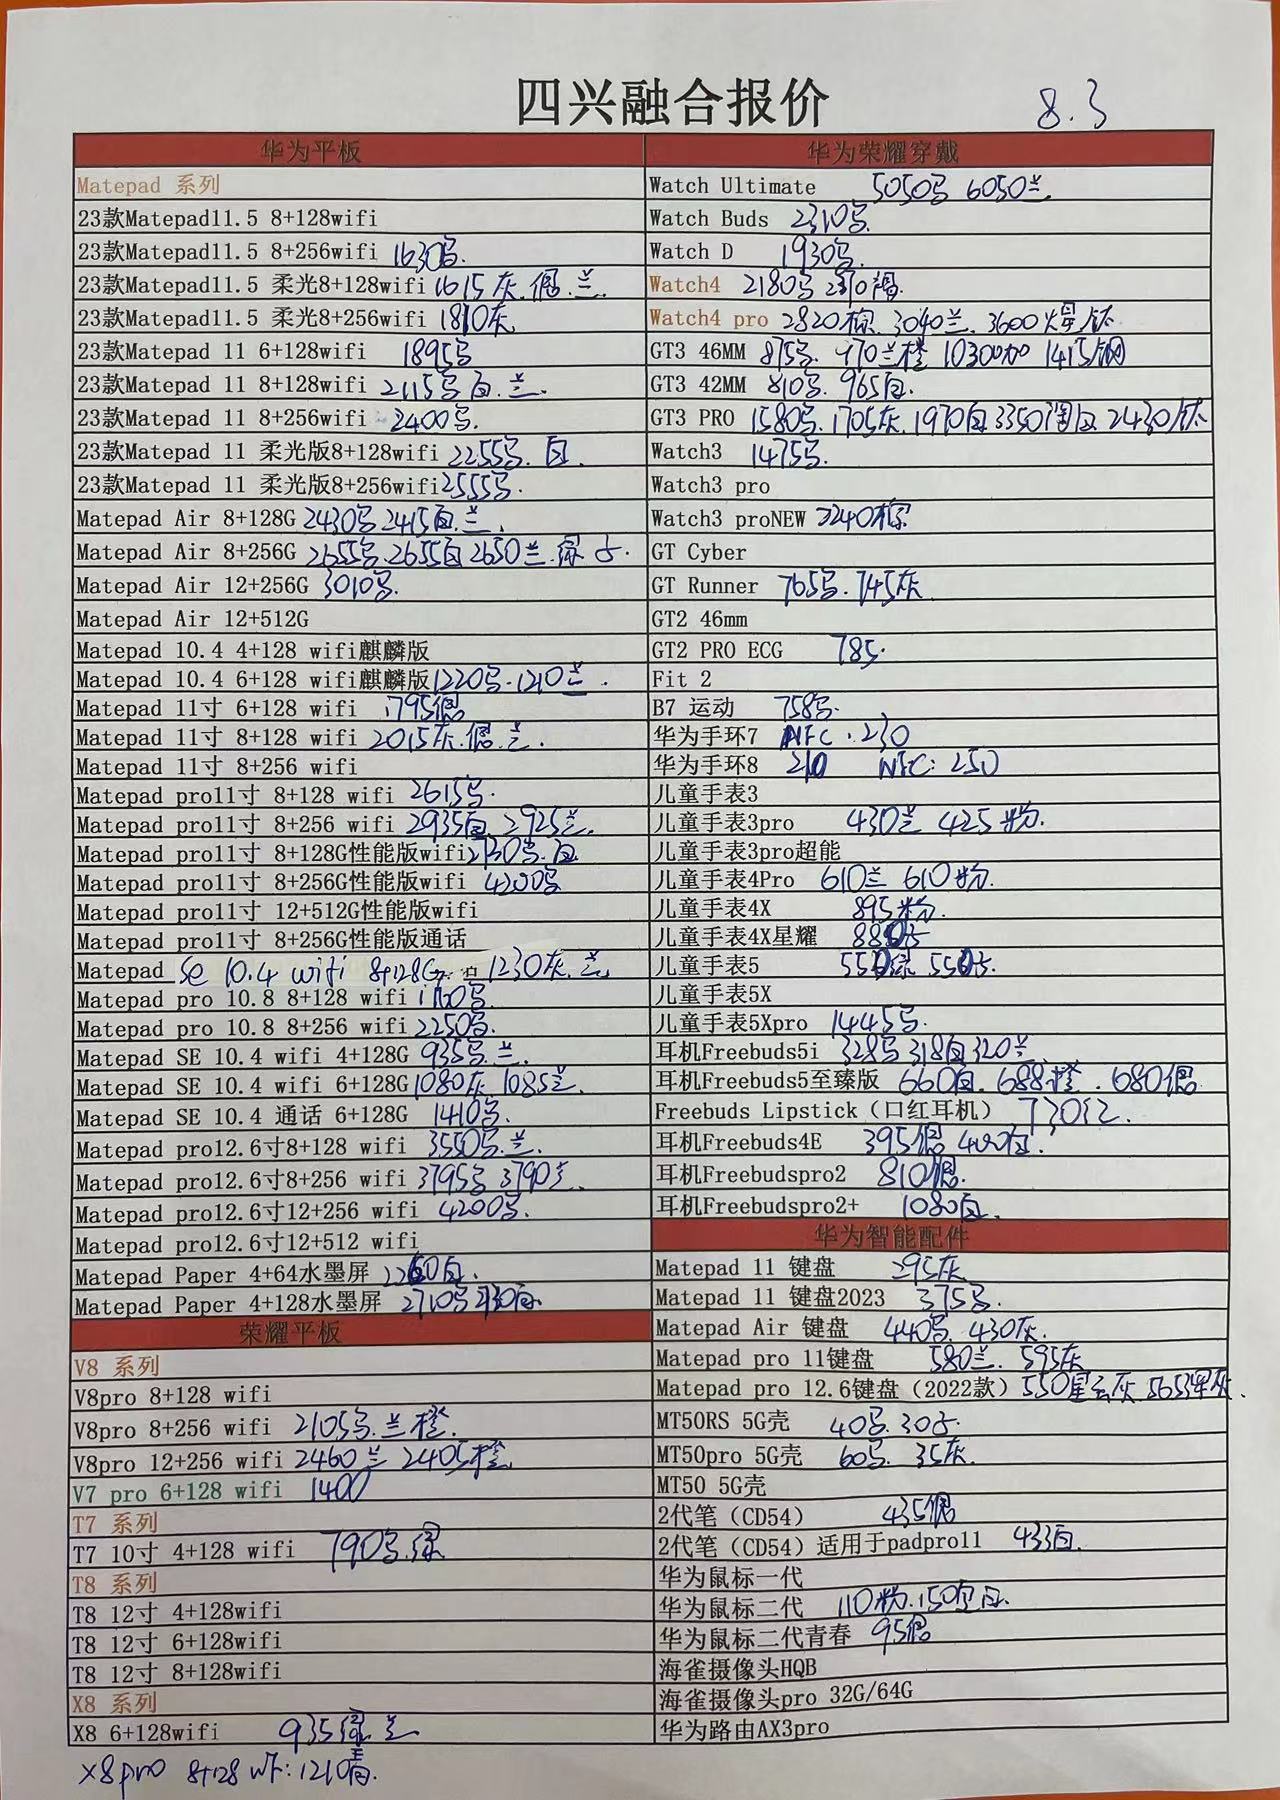 四兴融合报价 8.3
华为平板
Matepad 系列
23款Matepad11.5 8+128wifi
23款Matepad11.5 8+256wifi 1630
23款Matepad11.5 柔光8+128wifi 1615灰.银.兰
23款Matepad11.5 柔光8+256wifi 1810灰
23款Matepad 11 6+128wifi 1895
23款Matepad 11 8+128wifi 2115 白.兰.
23款Matepad 11 8+256wifi 2400
23款Matepad 11 柔光版8+128wifi 2255 白.
23款Matepad 11 柔光版8+256wifi 2555
Matepad Air 8+128G 2430 2415白.兰.
Matepad Air 8+256G 2655 2655白 2650兰.
Matepad Air 12+256G 3010
Matepad Air 12+512G
Matepad 10.4 4+128 wifi麒麟版
Matepad 10.4 6+128 wifi麒麟版 1220 1210兰.
Matepad 11寸 6+128 wifi 1795银
Matepad 11寸 8+128 wifi 2015灰.银.兰.
Matepad 11寸 8+256 wifi
Matepad pro11寸 8+128 wifi 2615
Matepad pro11寸 8+256 wifi 2935白 2925兰.
Matepad pro11寸 8+128G性能版wifi 白.
Matepad pro11寸 8+256G性能版wifi 4200
Matepad pro11寸 12+512G性能版wifi
Matepad pro11寸 8+256G性能版通话
Matepad se 10.4 wifi 8+128G 1230灰.兰
Matepad pro 10.8 8+128 wifi
Matepad pro 10.8 8+256 wifi 2250
Matepad SE 10.4 wifi 4+128G 935 兰.
Matepad SE 10.4 wifi 6+128G 1080灰 1085兰
Matepad SE 10.4 通话 6+128G 1410
Matepad pro12.6寸8+128 wifi 3550 兰.
Matepad pro12.6寸8+256 wifi 3795 3790兰.
Matepad pro12.6寸12+256 wifi 4200
Matepad pro12.6寸12+512 wifi
Matepad Paper 4+64水墨屏 白.
Matepad Paper 4+128水墨屏 2710
荣耀平板
V8 系列
V8pro 8+128 wifi
V8pro 8+256 wifi 2105 兰橙.
V8pro 12+256 wifi 2460兰 2405橙
V7 pro 6+128 wifi 1400
T7 系列
T7 10寸 4+128 wifi 790 绿
T8 系列
T8 12寸 4+128wifi
T8 12寸 6+128wifi
T8 12寸 8+128wifi
X8 系列
X8 6+128wifi 935绿 兰
X8pro 8+128 wf: 1210
华为荣耀穿戴
Watch Ultimate 5050 6050兰
Watch Buds 2310
Watch D 1930
Watch4 2180
Watch4 pro 2820棕. 3040兰. 3600
GT3 46MM 875 兰橙 1030 1415钢
GT3 42MM 810 965白.
GT3 PRO 1580 1705灰. 1970白 3350 2430钛
Watch3 1475
Watch3 pro
Watch3 proNEW 2240棕
GT Cyber
GT Runner 765 745灰
GT2 46mm
GT2 PRO ECG 785.
Fit 2
B7 运动 758
华为手环7 NFC.230
华为手环8 210 NFC: 250
儿童手表3
儿童手表3pro 430兰 425粉.
儿童手表3pro超能
儿童手表4Pro 610兰 610粉.
儿童手表4X 895粉.
儿童手表4X星耀
儿童手表5
儿童手表5X
儿童手表5Xpro 1445
耳机Freebuds5i 328 318白 320兰.
耳机Freebuds5至臻版 660白. 688橙. 680银
Freebuds Lipstick（口红耳机） 730红.
耳机Freebuds4E 395银 400白.
耳机Freebudspro2 810银.
耳机Freebudspro2+ 1080白.
华为智能配件
Matepad 11 键盘 295灰
Matepad 11 键盘2023 375
Matepad Air 键盘 440 430灰.
Matepad pro 11键盘 580兰. 595灰
Matepad pro 12.6键盘（2022款） 550星云灰 565深灰.
MT50RS 5G壳 40 30
MT50pro 5G壳 60 35灰.
MT50 5G壳
2代笔（CD54） 435银
2代笔（CD54）适用于padpro11 433白.
华为鼠标一代
华为鼠标二代 110粉.150 白.
华为鼠标二代青春 95银
海雀摄像头HQB
海雀摄像头pro 32G/64G
华为路由AX3pro